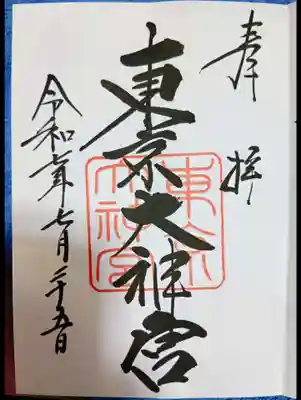 奉拝
東京大神宮
令和七年七月二十五日
東京大神宮